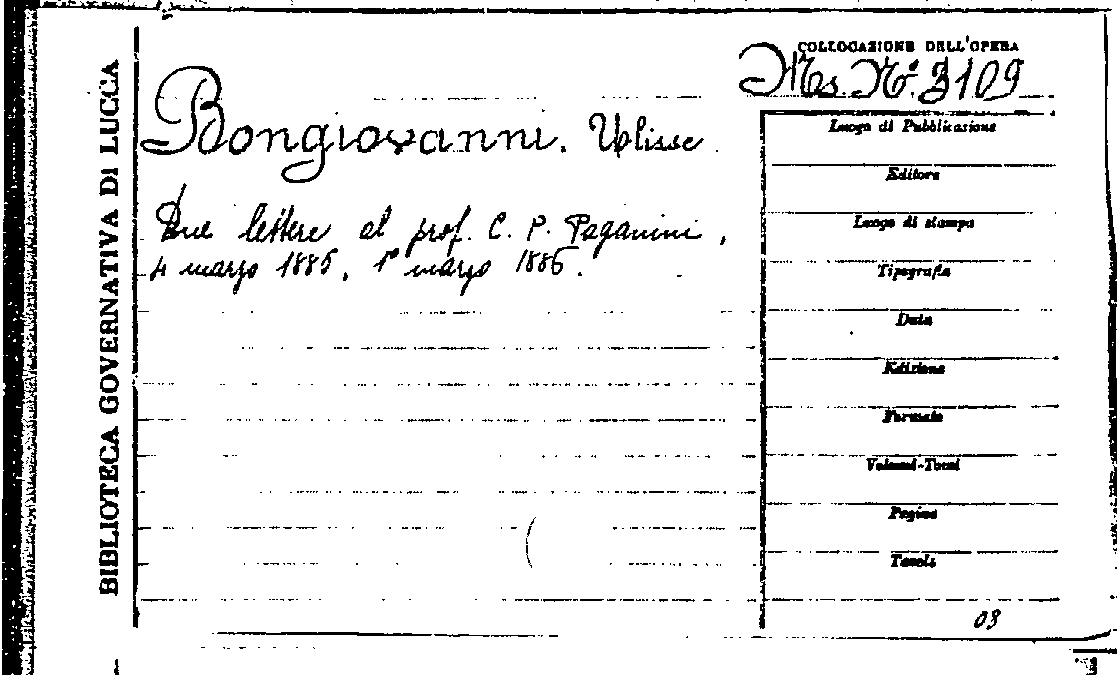 BIBLIOTECA GOVERNATIVA DI LUCCA
COLLOCAZIONE DELL'OPERA
Ms. N.° 3109
Bongiovanni, Ulisse
Due lettere al prof. C. P. Paganini,
4 marzo 1885, 1° marzo 1886.
Luogo di Pubblicazione
Editore
Luogo di stampa
Tipografia
Data
Edizione
Formato
Volumi-Tomi
Pagine
Tavole
03